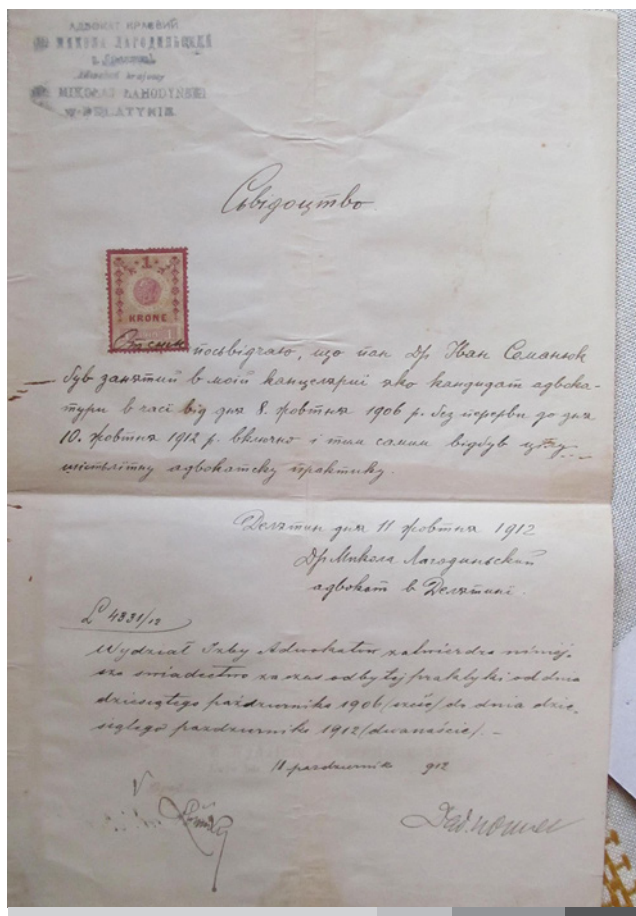 АДВОКАТ КРАЄВИЙ
МИКОЛА ЛАГОДИНЬСКИЙ
Adwokat krajowy
MIKOŁAJ ŁAHODYŃSKI
w DELATYNIE
Сьвідоцтво
1
KRONE
посьвідчаю, що пан Др Іван Семанюк
був занятий в моїй канцелярії яко кандидат адвока-
тури в часі від дня 8. жовтня 1906 р. без перерви до дня
10. жовтня 1912 р. включно і тим самим відбув цілу
шістьлітну адвокатску практику.
Делятин дня 11 жовтня 1912
Др Микола Лагодиньский
адвокат в Делятині.
L 4331/12
Wydział Izby Adwokatów zatwierdza niniej-
sze świadectwo za czas odbytej praktyki od dnia
dziesiątego października 1906 (sześć) do dnia dzie-
siątego października 1912 (dwanaście). –
11 październik 912